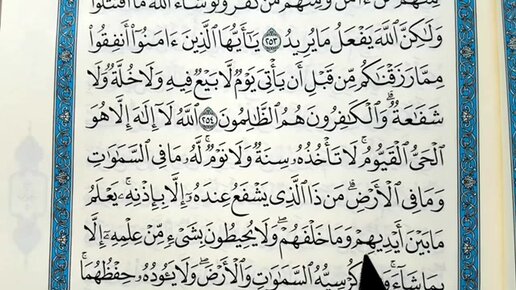 مِنْهُم مَّنْ ءَامَنَ وَمِنْهُم مَّن كَفَرَ وَلَوْ شَآءَ ٱللَّهُ مَا ٱقْتَتَلُوا۟
وَلَٰكِنَّ ٱللَّهَ يَفْعَلُ مَا يُرِيدُ ٢٥٣ يَٰٓأَيُّهَا ٱلَّذِينَ ءَامَنُوٓا۟ أَنفِقُوا۟
مِمَّا رَزَقْنَٰكُم مِّن قَبْلِ أَن يَأْتِىَ يَوْمٌ لَّا بَيْعٌ فِيهِ وَلَا خُلَّةٌ وَلَا
شَفَٰعَةٌ ۗ وَٱلْكَٰفِرُونَ هُمُ ٱلظَّٰلِمُونَ ٢٥٤ ٱللَّهُ لَآ إِلَٰهَ إِلَّا هُوَ
ٱلْحَىُّ ٱلْقَيُّومُ ۚ لَا تَأْخُذُهُۥ سِنَةٌ وَلَا نَوْمٌ ۚ لَّهُۥ مَا فِى ٱلسَّمَٰوَٰتِ
وَمَا فِى ٱلْأَرْضِ ۗ مَن ذَا ٱلَّذِى يَشْفَعُ عِندَهُۥٓ إِلَّا بِإِذْنِهِۦ ۚ يَعْلَمُ
مَا بَيْنَ أَيْدِيهِمْ وَمَا خَلْفَهُمْ ۖ وَلَا يُحِيطُونَ بِشَىْءٍ مِّنْ عِلْمِهِۦٓ إِلَّا
بِمَا شَآءَ ۚ كُرْسِيُّهُ ٱلسَّمَٰوَٰتِ وَٱلْأَرْضَ ۖ وَلَا يَـُٔودُهُۥ حِفْظُهُمَا ۚ